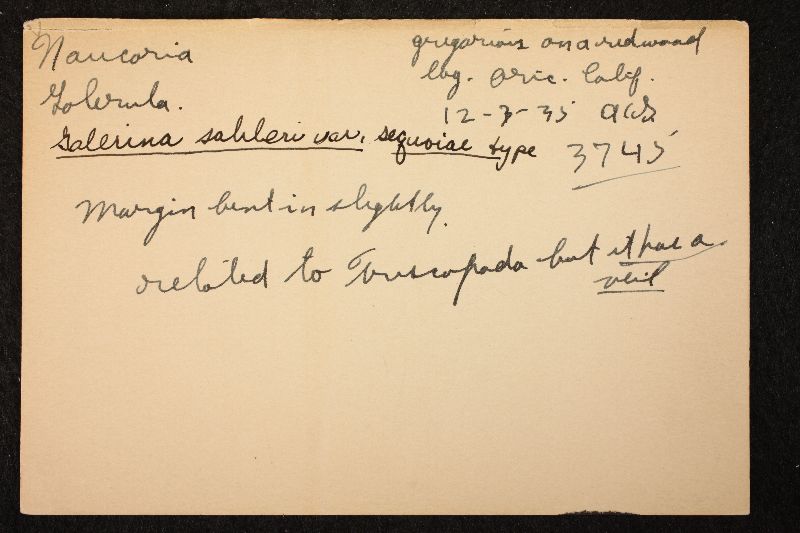 Naucoria
Galerula.
Galerina sahleri var. sequoiae type
gregarious on a redwood
log. Oric. Calif.
12-3-35 AHS
3745
Margin bent in slightly.
related to but it has a
veil